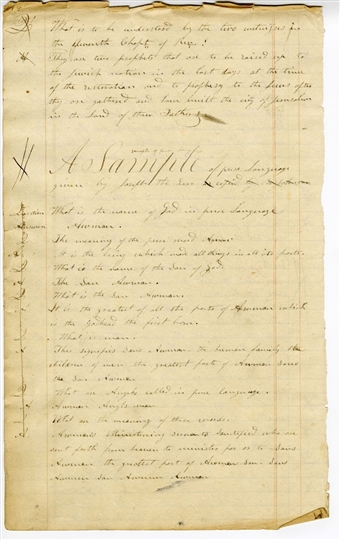 What is to be understood by the two witnesses in
the eleventh Chapter of Rev.?
They are two prophets that are to be raised up to
the jewish nation in the last days at the time
of the restoration and to prophesy to the Jews after
they are gathered and have built the city of jerusalem
in the Land of their Fathers
A Sample of pure Language
given by Joseph the Seer
Question What is the name of God in pure Language
Answer Awman.
The meaning of the pure word Awman
It is the being which made all things in all its parts.
What is the name of the Son of God.
The Son Awman.
What is the Son Awman.
It is the greatest of all the parts of Awman which
is the Godhead the first born.
What is man.
This signifies Sons Awman. the human family the
children of men the greatest parts of Awman Sons
the Son Awman
What are Angels called in pure language.
Awman Angls-men
What is the meaning of these words.
Awman's Ministering servants Sanctified who are
sent forth from heaven to minister for or to Sons
Awman the greatest part of Awman Son. Sons
Awman Son Awman Awman